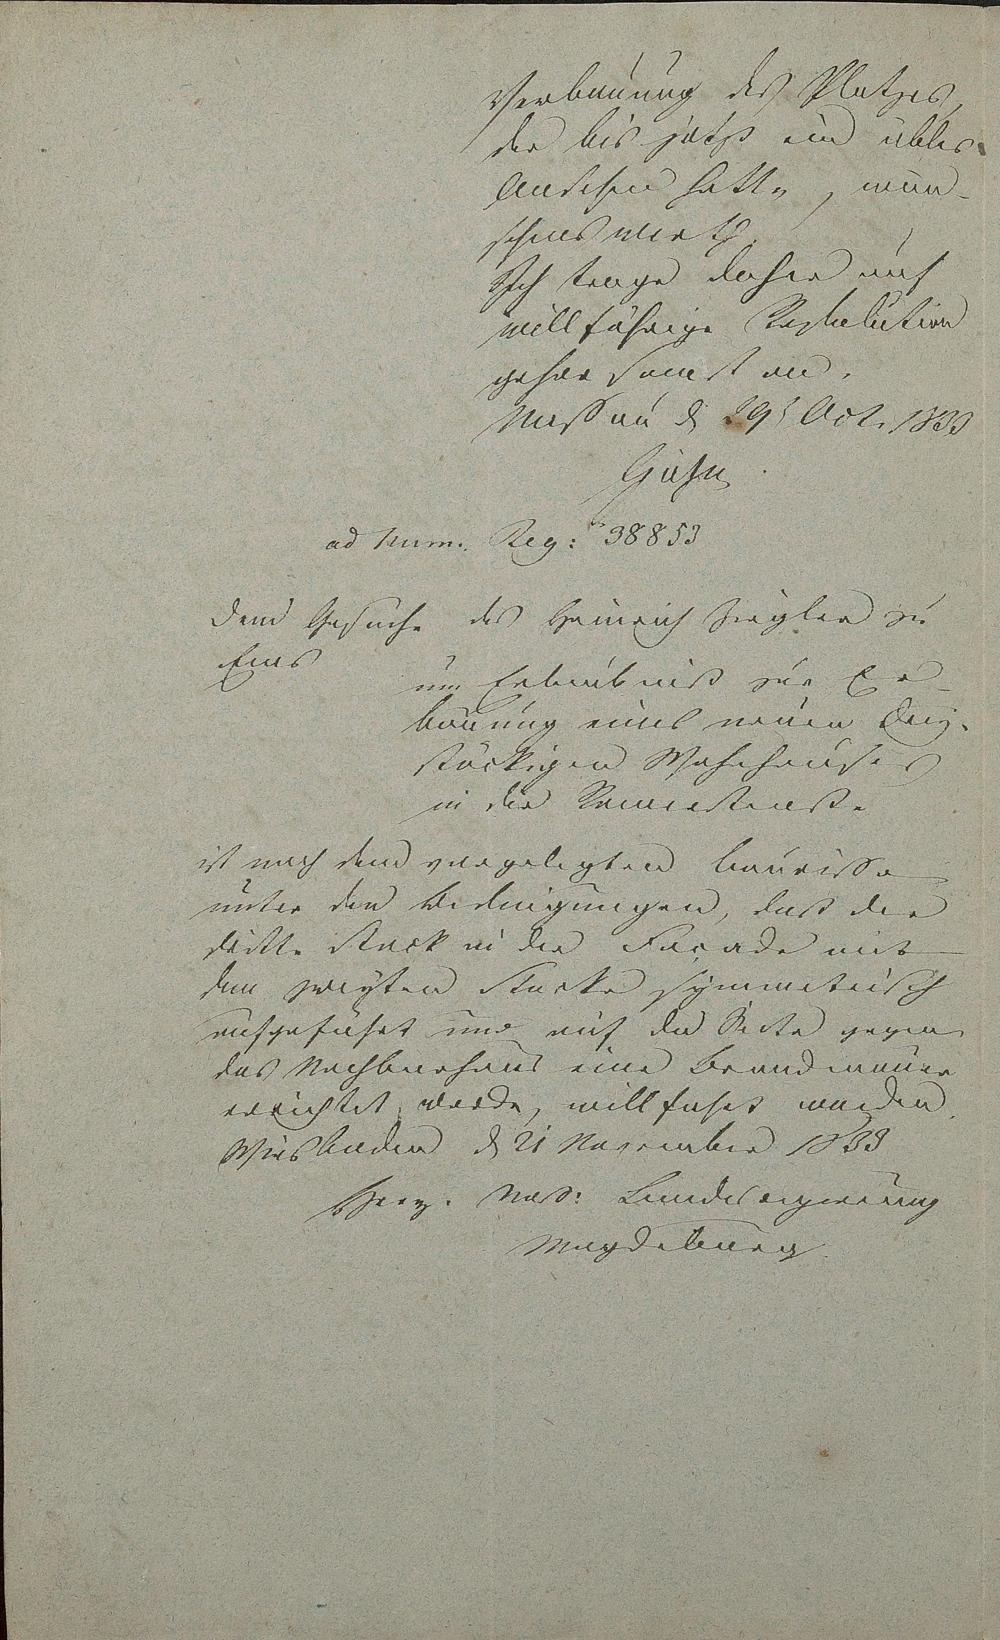 Verbauung des Platzes,
der bis jetzt ein übles
Ansehen hatte, wün-
schenswerth.
Ich trage daher auf
willfährige Resolution
gehorsamst an.
Nassau d 29t Oct. 1833

ad Num. Reg: 38853
Dem Gesuche des Heinrich Ziegler zu
Ems
um Erlaubniß zur Er-
bauung eines neuen drey-
stöckigen Wohnhauses
in der Römerstraße
ist nach dem vorgelegten Baurisse
unter den Bedingungen, daß der
dritte Stock in der Façade mit
dem zweyten Stocke symmetrisch
aufgeführt und auf der Seite gegen
das Nachbarhaus eine Brandmauer
errichtet werde, willfahrt worden.
Wiesbaden d 21 November 1833
Herz. Nass: Landesregierung
Magdeburg